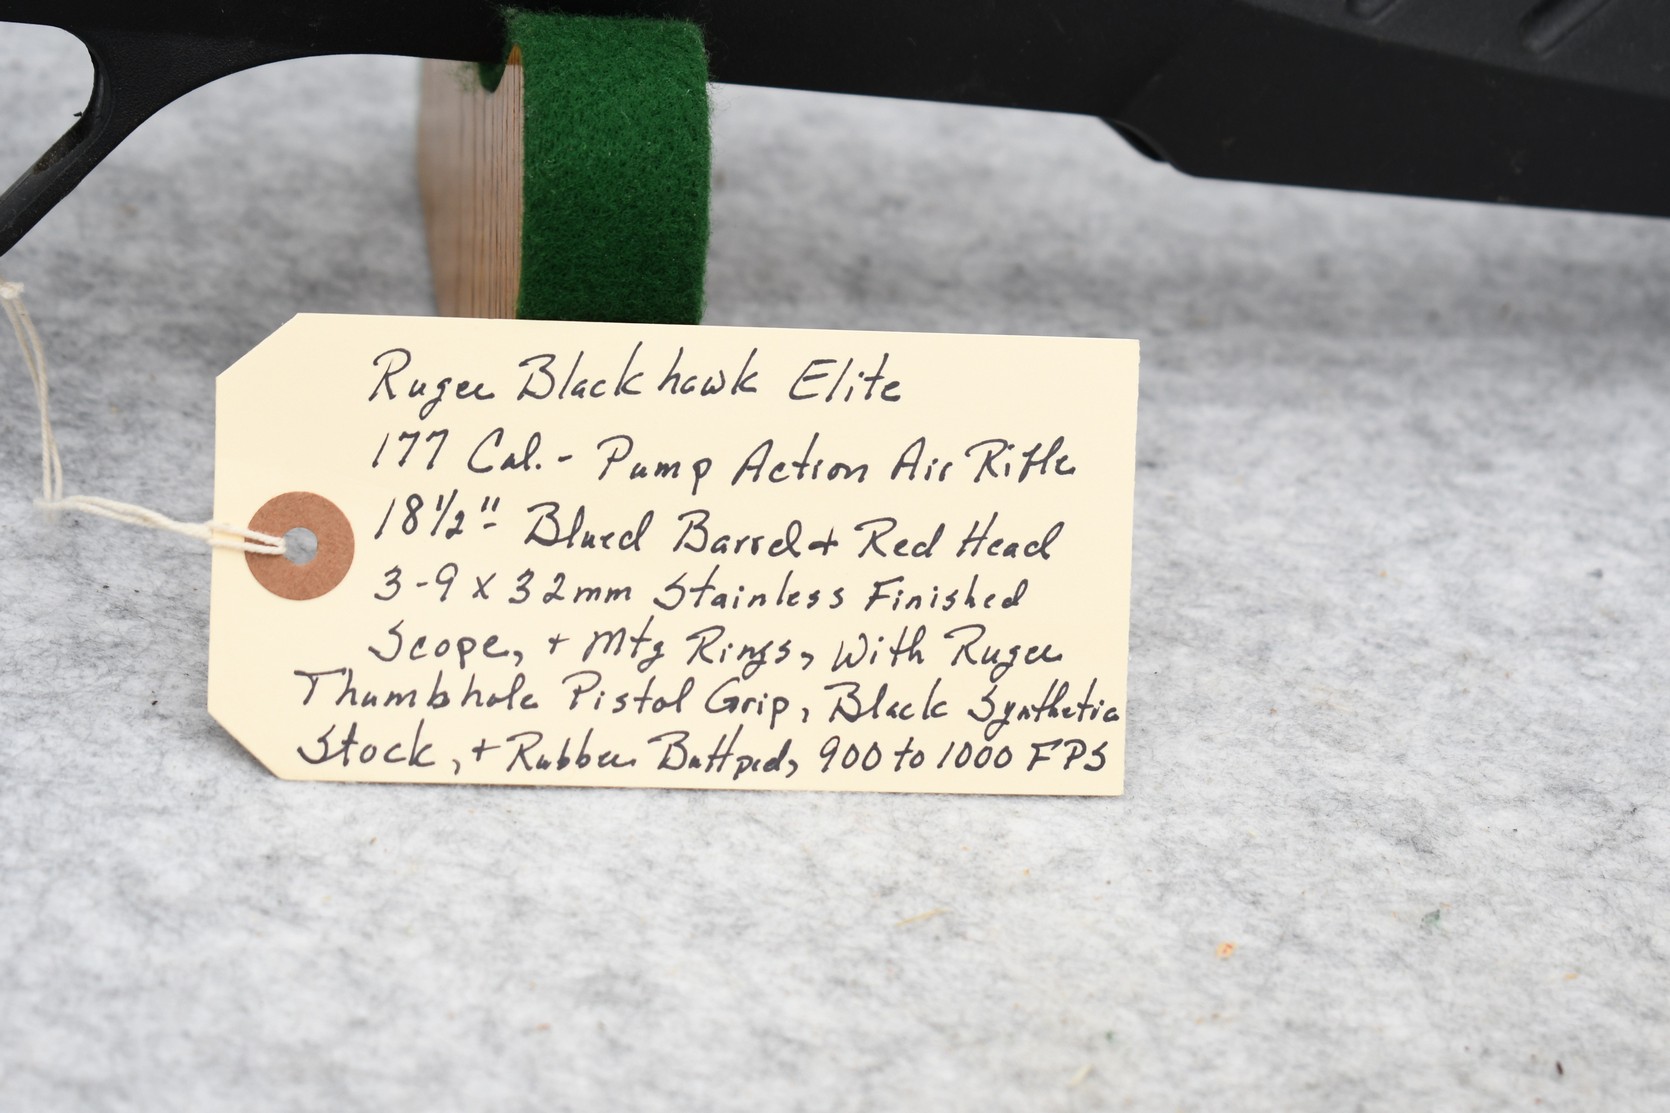 Ruger Blackhawk Elite
177 Cal. - Pump Action Air Rifle
18 1/2" Blued Barrel + Red Head
3-9 x 32mm Stainless Finished
Scope, + Mtg Rings, With Ruger
Thumbhole Pistol Grip, Black Synthetic
Stock, + Rubber Buttpad, 900 to 1000 FPS